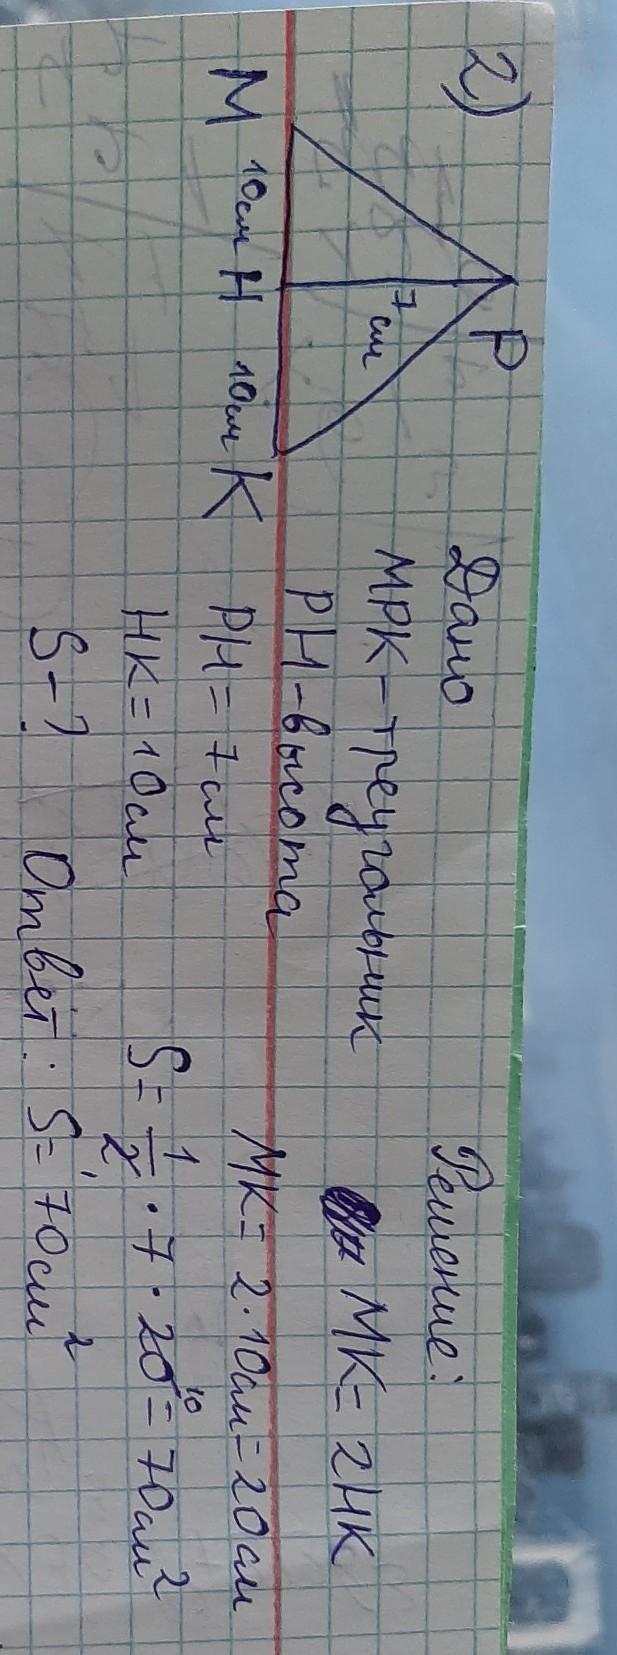 2)
P
7 см
M 10см H 10см K
Дано
MPK – треугольник
PH – высота
PH = 7 см
HK = 10 см
S – ?
Решение:
MK = 2HK
MK = 2 · 10см = 20 см
S = 1/2 · 7 · 20 10 = 70 см²
Ответ: S = 70 см²